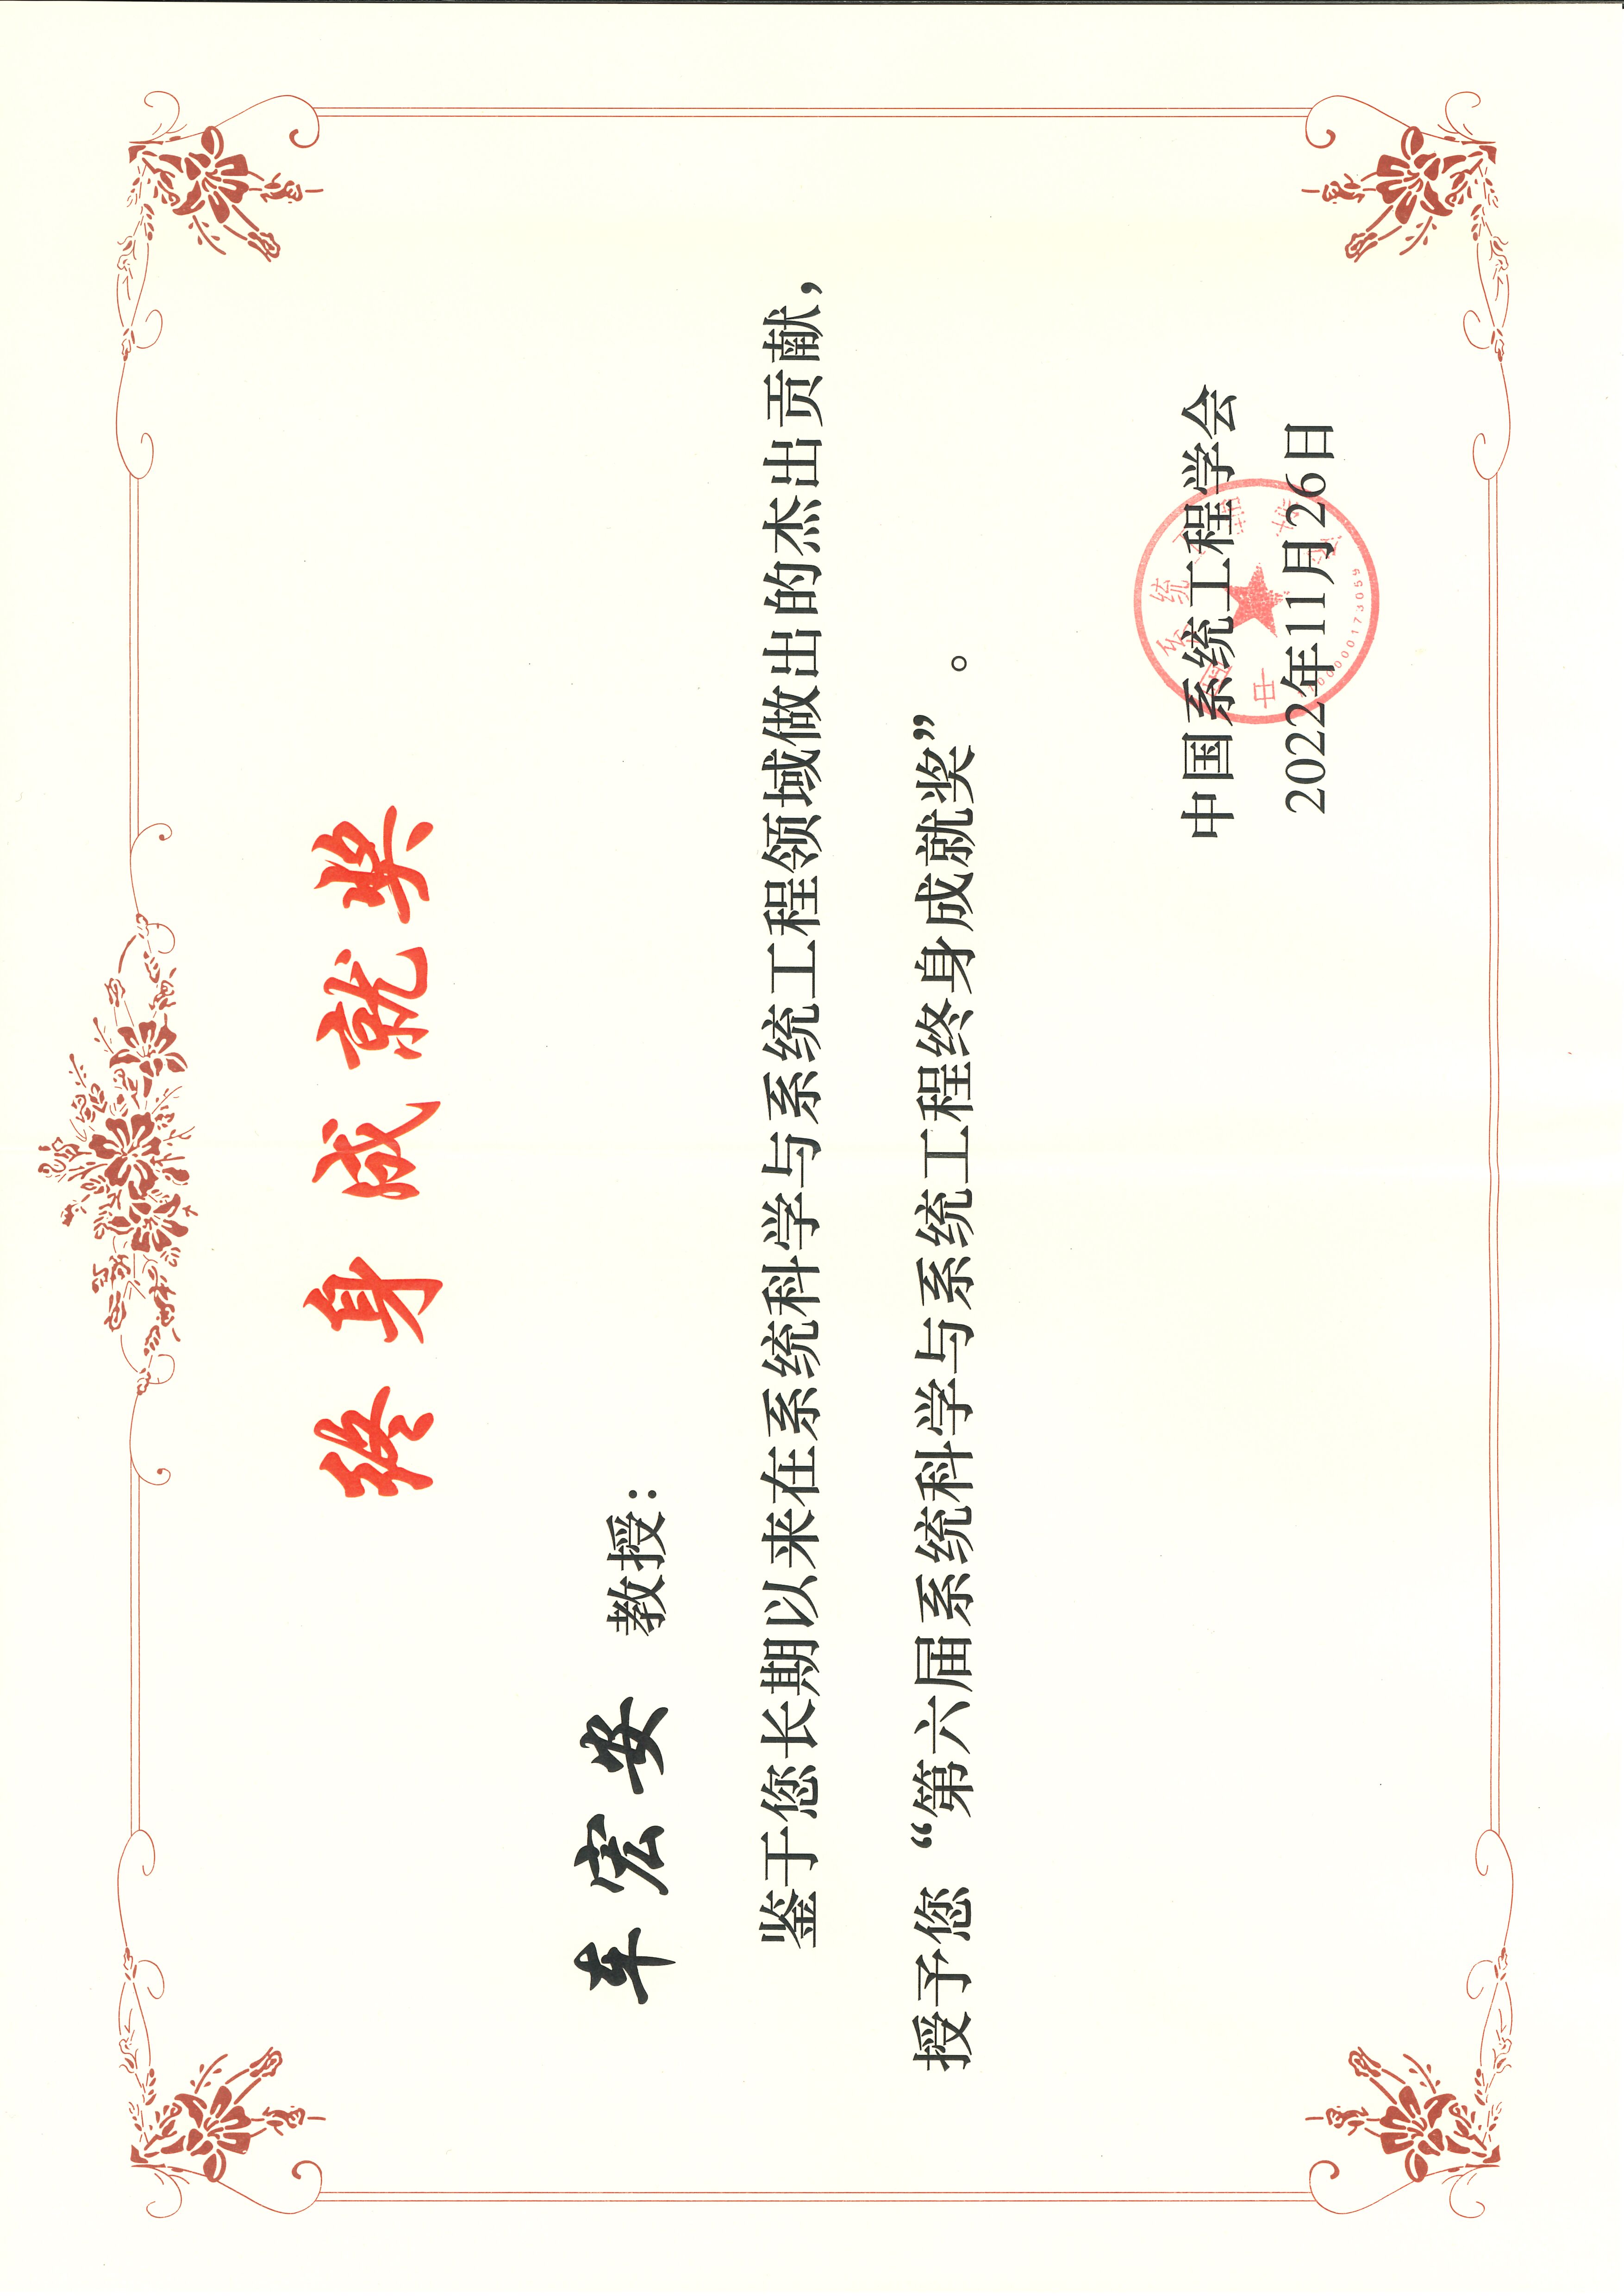 终身成就奖
车宏安 教授：
鉴于您长期以来在系统科学与系统工程领域做出的杰出贡献，
授予您“第六届系统科学与系统工程终身成就奖”。
中国系统工程学会
2022年11月26日
中国系统工程学会